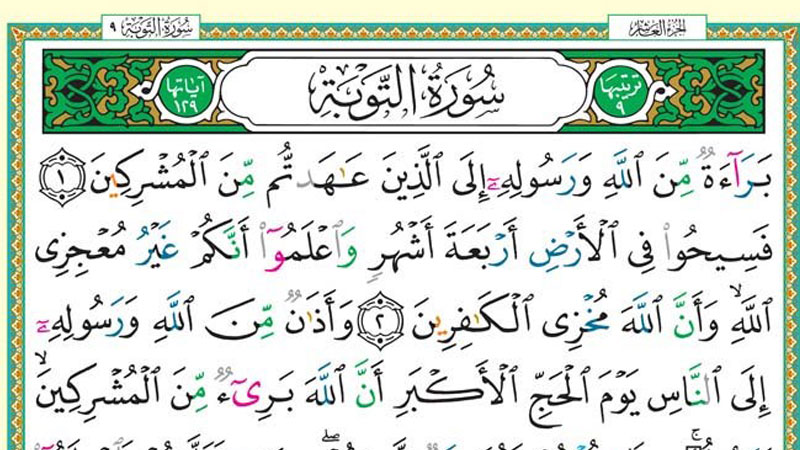 الجزء العاشر
سورة التوبة ٩
ترتيبها ٩
سُورَةُ التَّوْبَةِ
آياتها ١٢٩
بَرَآءَةٌ مِّنَ ٱللَّهِ وَرَسُولِهِۦٓ إِلَى ٱلَّذِينَ عَـٰهَدتُّم مِّنَ ٱلْمُشْرِكِينَ ١
فَسِيحُوا۟ فِى ٱلْأَرْضِ أَرْبَعَةَ أَشْهُرٍ وَٱعْلَمُوٓا۟ أَنَّكُمْ غَيْرُ مُعْجِزِى
ٱللَّهِ ۙ وَأَنَّ ٱللَّهَ مُخْزِى ٱلْكَـٰفِرِينَ ٢ وَأَذَٰنٌ مِّنَ ٱللَّهِ وَرَسُولِهِۦٓ
إِلَى ٱلنَّاسِ يَوْمَ ٱلْحَجِّ ٱلْأَكْبَرِ أَنَّ ٱللَّهَ بَرِىٓءٌ مِّنَ ٱلْمُشْرِكِينَ ۙ